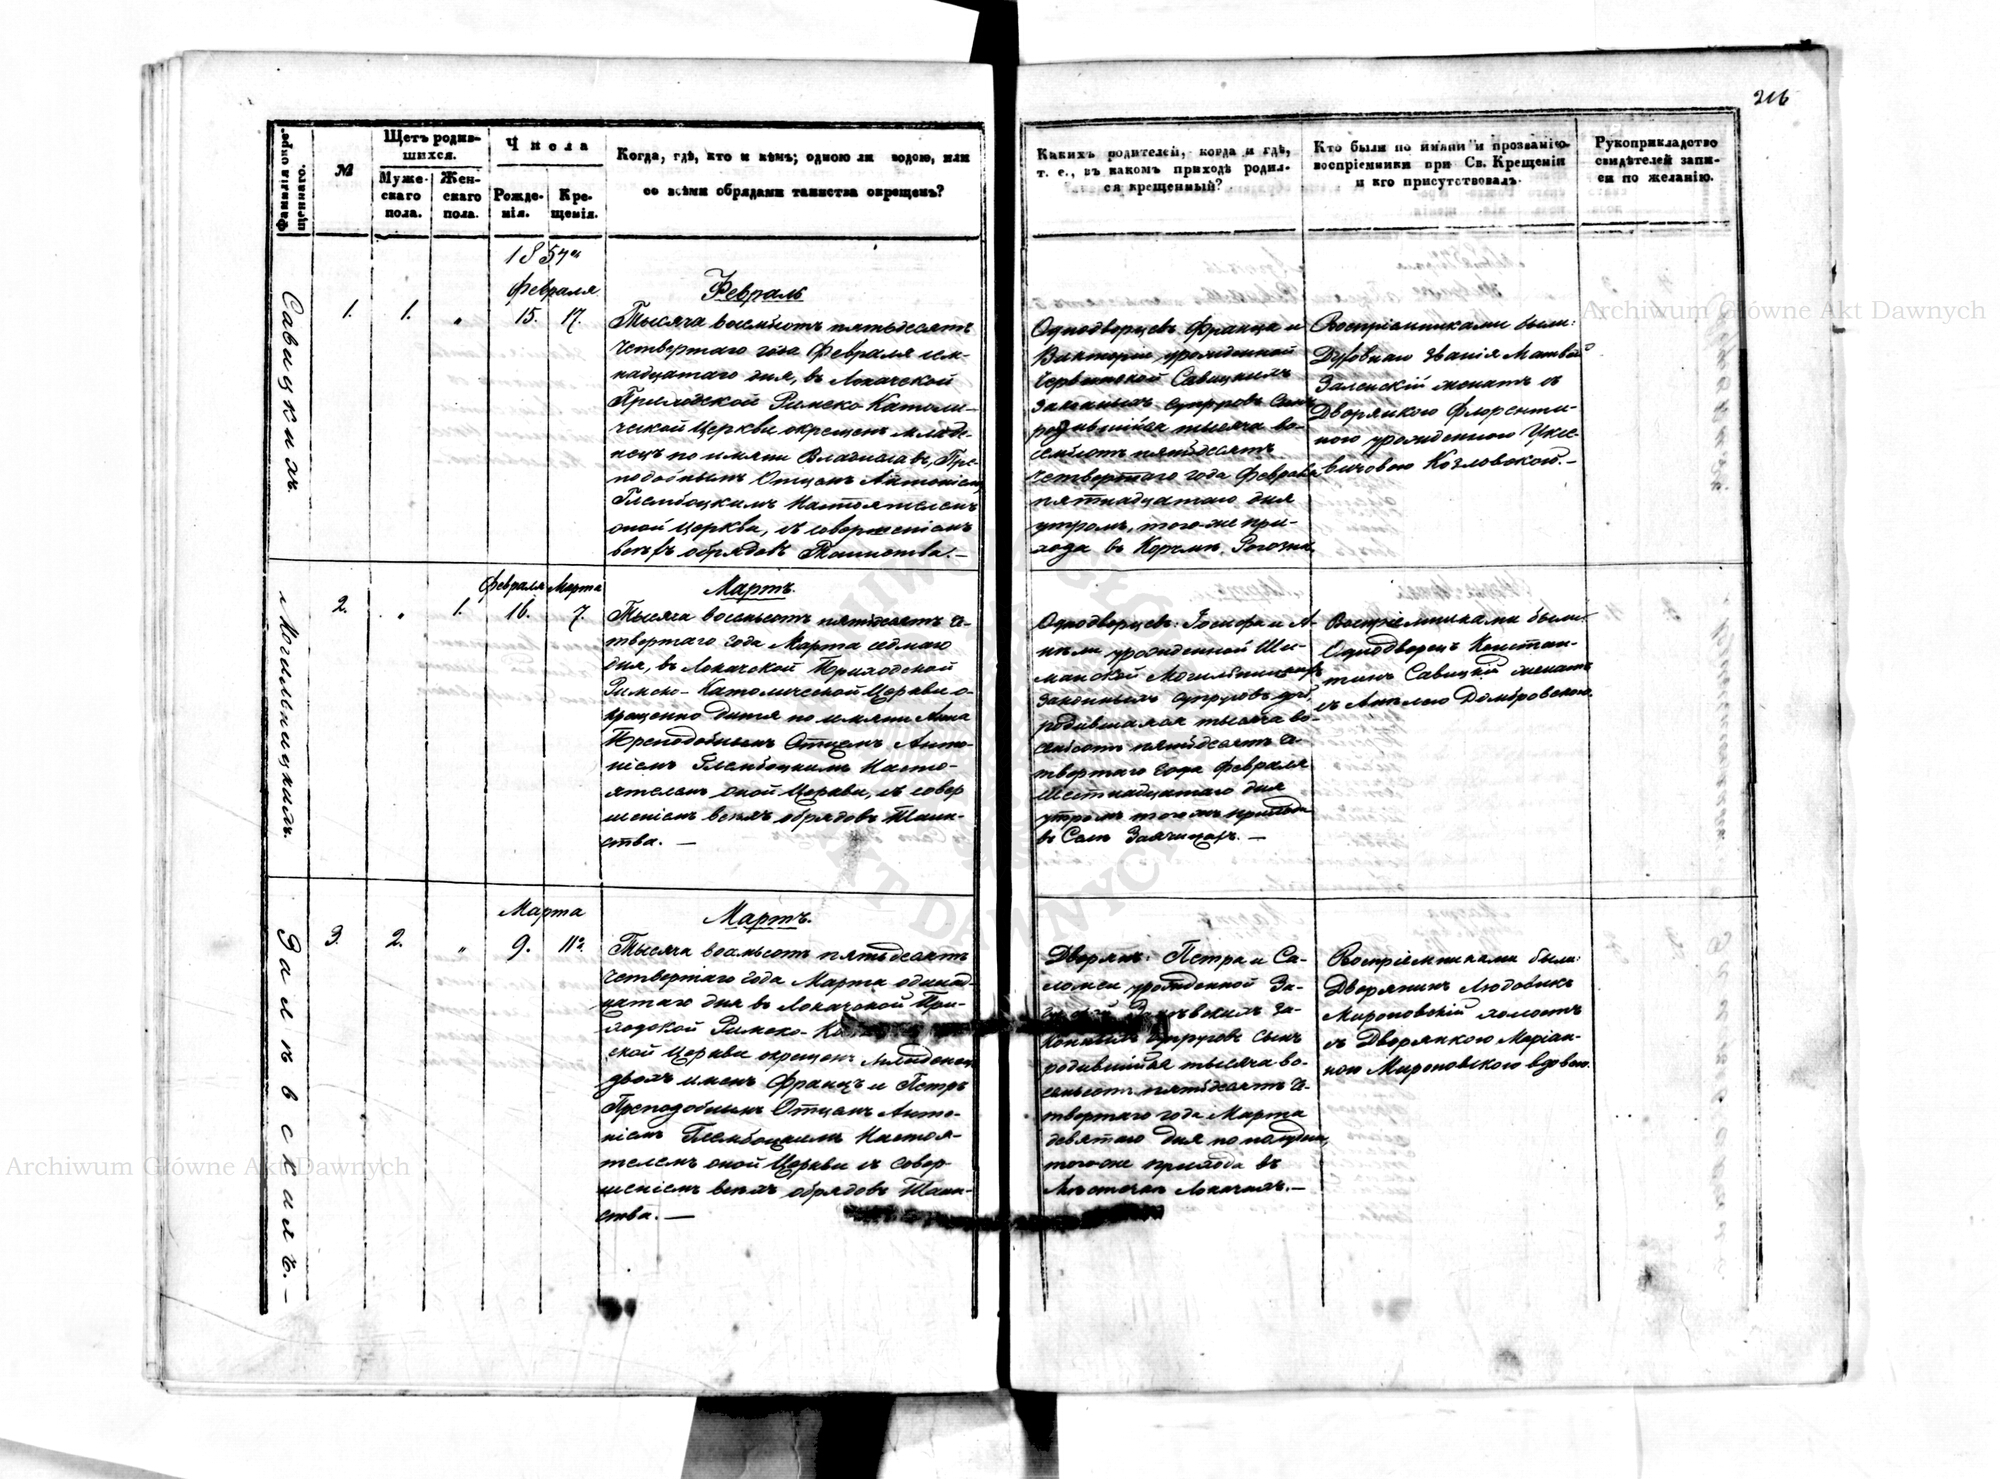 216
Фамилія окре-
щеннаго.
№
Щетъ родив-
шихся.
Муже-
скаго
пола.
Жен-
скаго
пола.
Числа
Рожде-
нія.
Кре-
щенія.
Когда, гдѣ, кто и кѣмъ; одною ли водою, или
со всѣми обрядами таинства окрещенъ?
Какихъ родителей, когда и гдѣ,
т. е., въ какомъ приходѣ родил-
ся крещенный?
Кто были по имяни и прозванію
воспріемники при Св. Крещеніи
и кто присутствовалъ.
Рукоприкладство
свидѣтелей запи-
си по желанію.
1854
Февраля
Савицкихъ.
1.
1.
"
15.
17.
Февраль
Тысяча восемьсотъ пятьдесятъ
четвертаго года Февраля сем-
надцатаго дня, въ Локачской
Приходской Римско-Католи-
ческой Церкви окрещенъ младе-
нецъ по имяни Владиславъ, Пре-
подобнымъ Отцемъ Антоніемъ
Глембоцкимъ Настоятелемъ
оной Церкви, съ совершеніемъ
всѣхъ обрядовъ Таинства.—
Однодворцевъ Франца и
Викторіи урожденной
Савицкихъ
законныхъ супруговъ сынъ
родившійся тысяча во-
семьсотъ пятьдесятъ
четвертаго года Февраля
пятнадцатаго дня
утромъ, того-же при-
хода въ Корчмѣ
Воспріемниками были:
Духовнаго званія Матвѣй
Заленскій женатъ съ
Дворянкою Флоренти-
ною урожденною
Козловскою.—
Могильницкихъ.
Февраля Марта
2.
"
1.
16.
7.
Мартъ.
Тысяча восемьсотъ пятьдесятъ че-
твертаго года Марта седмаго
дня, въ Локачской Приходской
Римско-Католической Церкви о-
крещенно дитя по имяни Анна
Преподобнымъ Отцемъ Анто-
ніемъ Глембоцкимъ Насто-
ятелемъ оной Церкви, съ совер
шеніемъ всѣхъ обрядовъ Таин-
ства. —
Однодворцевъ: Іосифа и А-
нѣли урожденной Ши-
манской Могильницкихъ
законныхъ супруговъ дочь
родившаяся тысяча во-
семьсотъ пятьдесятъ че-
твертаго года Февраля
шестнадцатаго дня
утромъ того-же прихода
въ Селѣ Заячицахъ. —
Воспріемниками были:
Однодворецъ Констан-
тинъ Савицкій женатъ
съ Анелею Домбровскою.
Залѣвскихъ.—
Марта
3.
2.
"
9.
11.
Мартъ.
Тысяча восемьсотъ пятьдесятъ
четвертаго года Марта одинад-
цатаго дня въ Локачской При-
ходской Римско-
ской Церкви окрещенъ младенецъ
двохъ именъ Францъ и Петръ
Преподобнымъ Отцемъ Анто-
ніемъ Глембоцкимъ Настоя-
телемъ оной Церкви съ совер-
шеніемъ всѣхъ обрядовъ Таин-
ства. —
Дворянъ: Петра и Са-
ломеи урожденной За-
Залѣвскихъ за-
конныхъ супруговъ сынъ
родившійся тысяча во-
семьсотъ пятьдесятъ че-
твертаго года Марта
девятаго дня по полудни,
того-же прихода въ
Мѣстечкѣ Локачахъ.—
Воспріемниками были:
Дворянинъ Людовикъ
Мироновскій холостъ
съ Дворянкою Маріан-
ною Мироновскою вдовою.
Archiwum Główne Akt Dawnych
Archiwum Główne Akt Dawnych